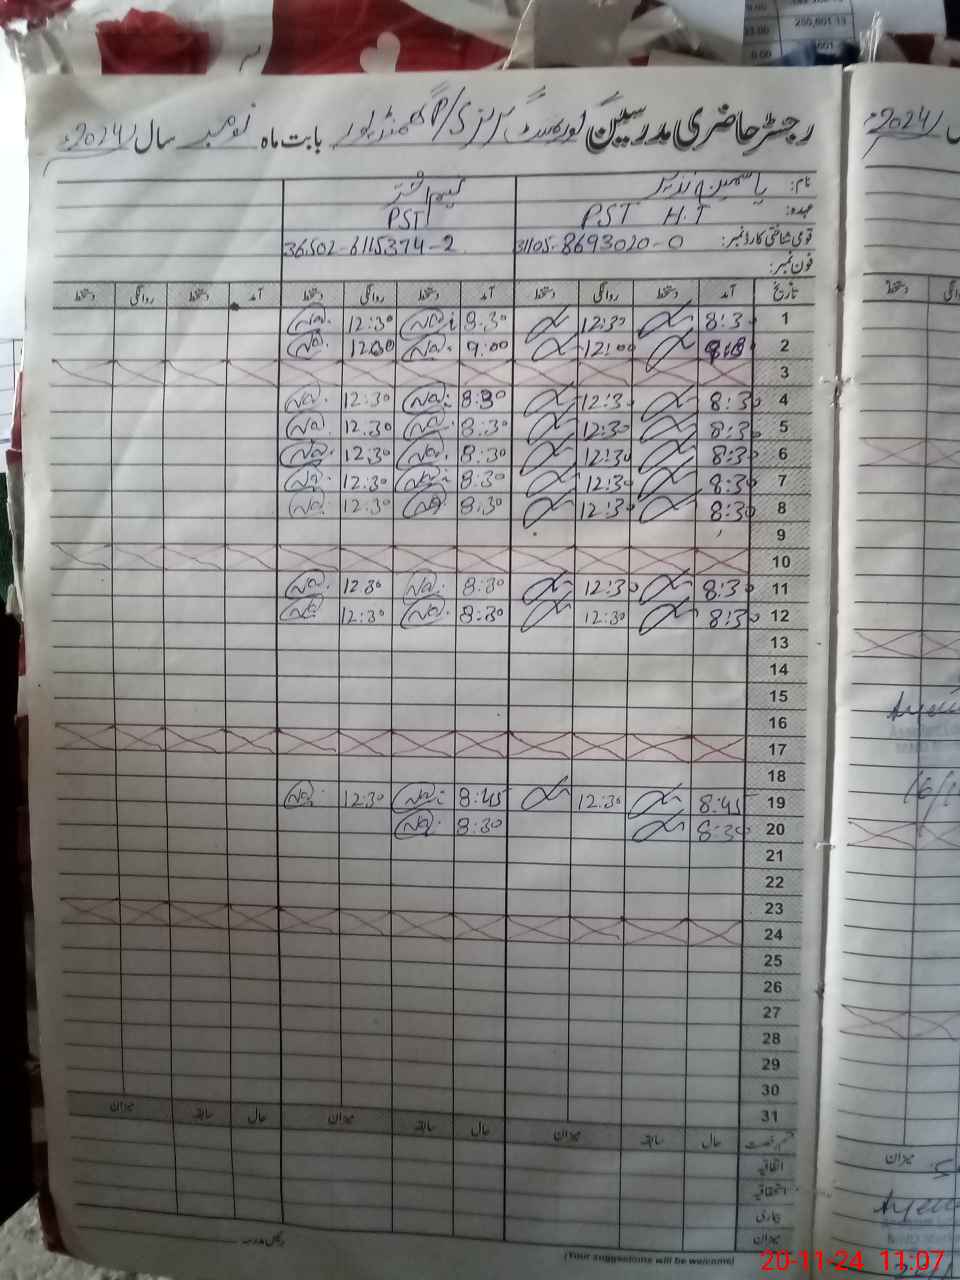 250,601.13
رجسٹر حاضری مدرسین گورنمنٹ گرلز P/S گھمنڈپور بابت ماہ نومبر سال 2024ء
نام: یاسمین نذیر نسیم اختر
عہدہ: PST H.T PST
قومی شناختی کارڈ نمبر: 31105-8693020-0 36502-6115374-2
فون نمبر:
تاریخ آمد دستخط روانگی دستخط آمد دستخط روانگی دستخط آمد دستخط روانگی دستخط
1 8:30 12:30 8:30 12:30
2 9:00 12:00 9:00 12:00
3
4 8:30 12:30 8:30 12:30
5 8:30 12:30 8:30 12:30
6 8:30 12:30 8:30 12:30
7 8:30 12:30 8:30 12:30
8 8:30 12:30 8:30 12:30
9
10
11 8:30 12:30 8:30 12:30
12 8:30 12:30 8:30 12:30
13
14
15
16
17
18
19 8:45 12:30 8:45 12:30
20 8:30 8:30
21
22
23
24
25
26
27
28
29
30
31
قسم رخصت حال سابقہ میزان حال سابقہ میزان حال سابقہ میزان
اتفاقیہ
استحقاقیہ
بیماری
میزان
رئیس مدرسہ
(Your suggestions will be welcome)
2024ء
دستخط
میزان
20-11-24 11:07